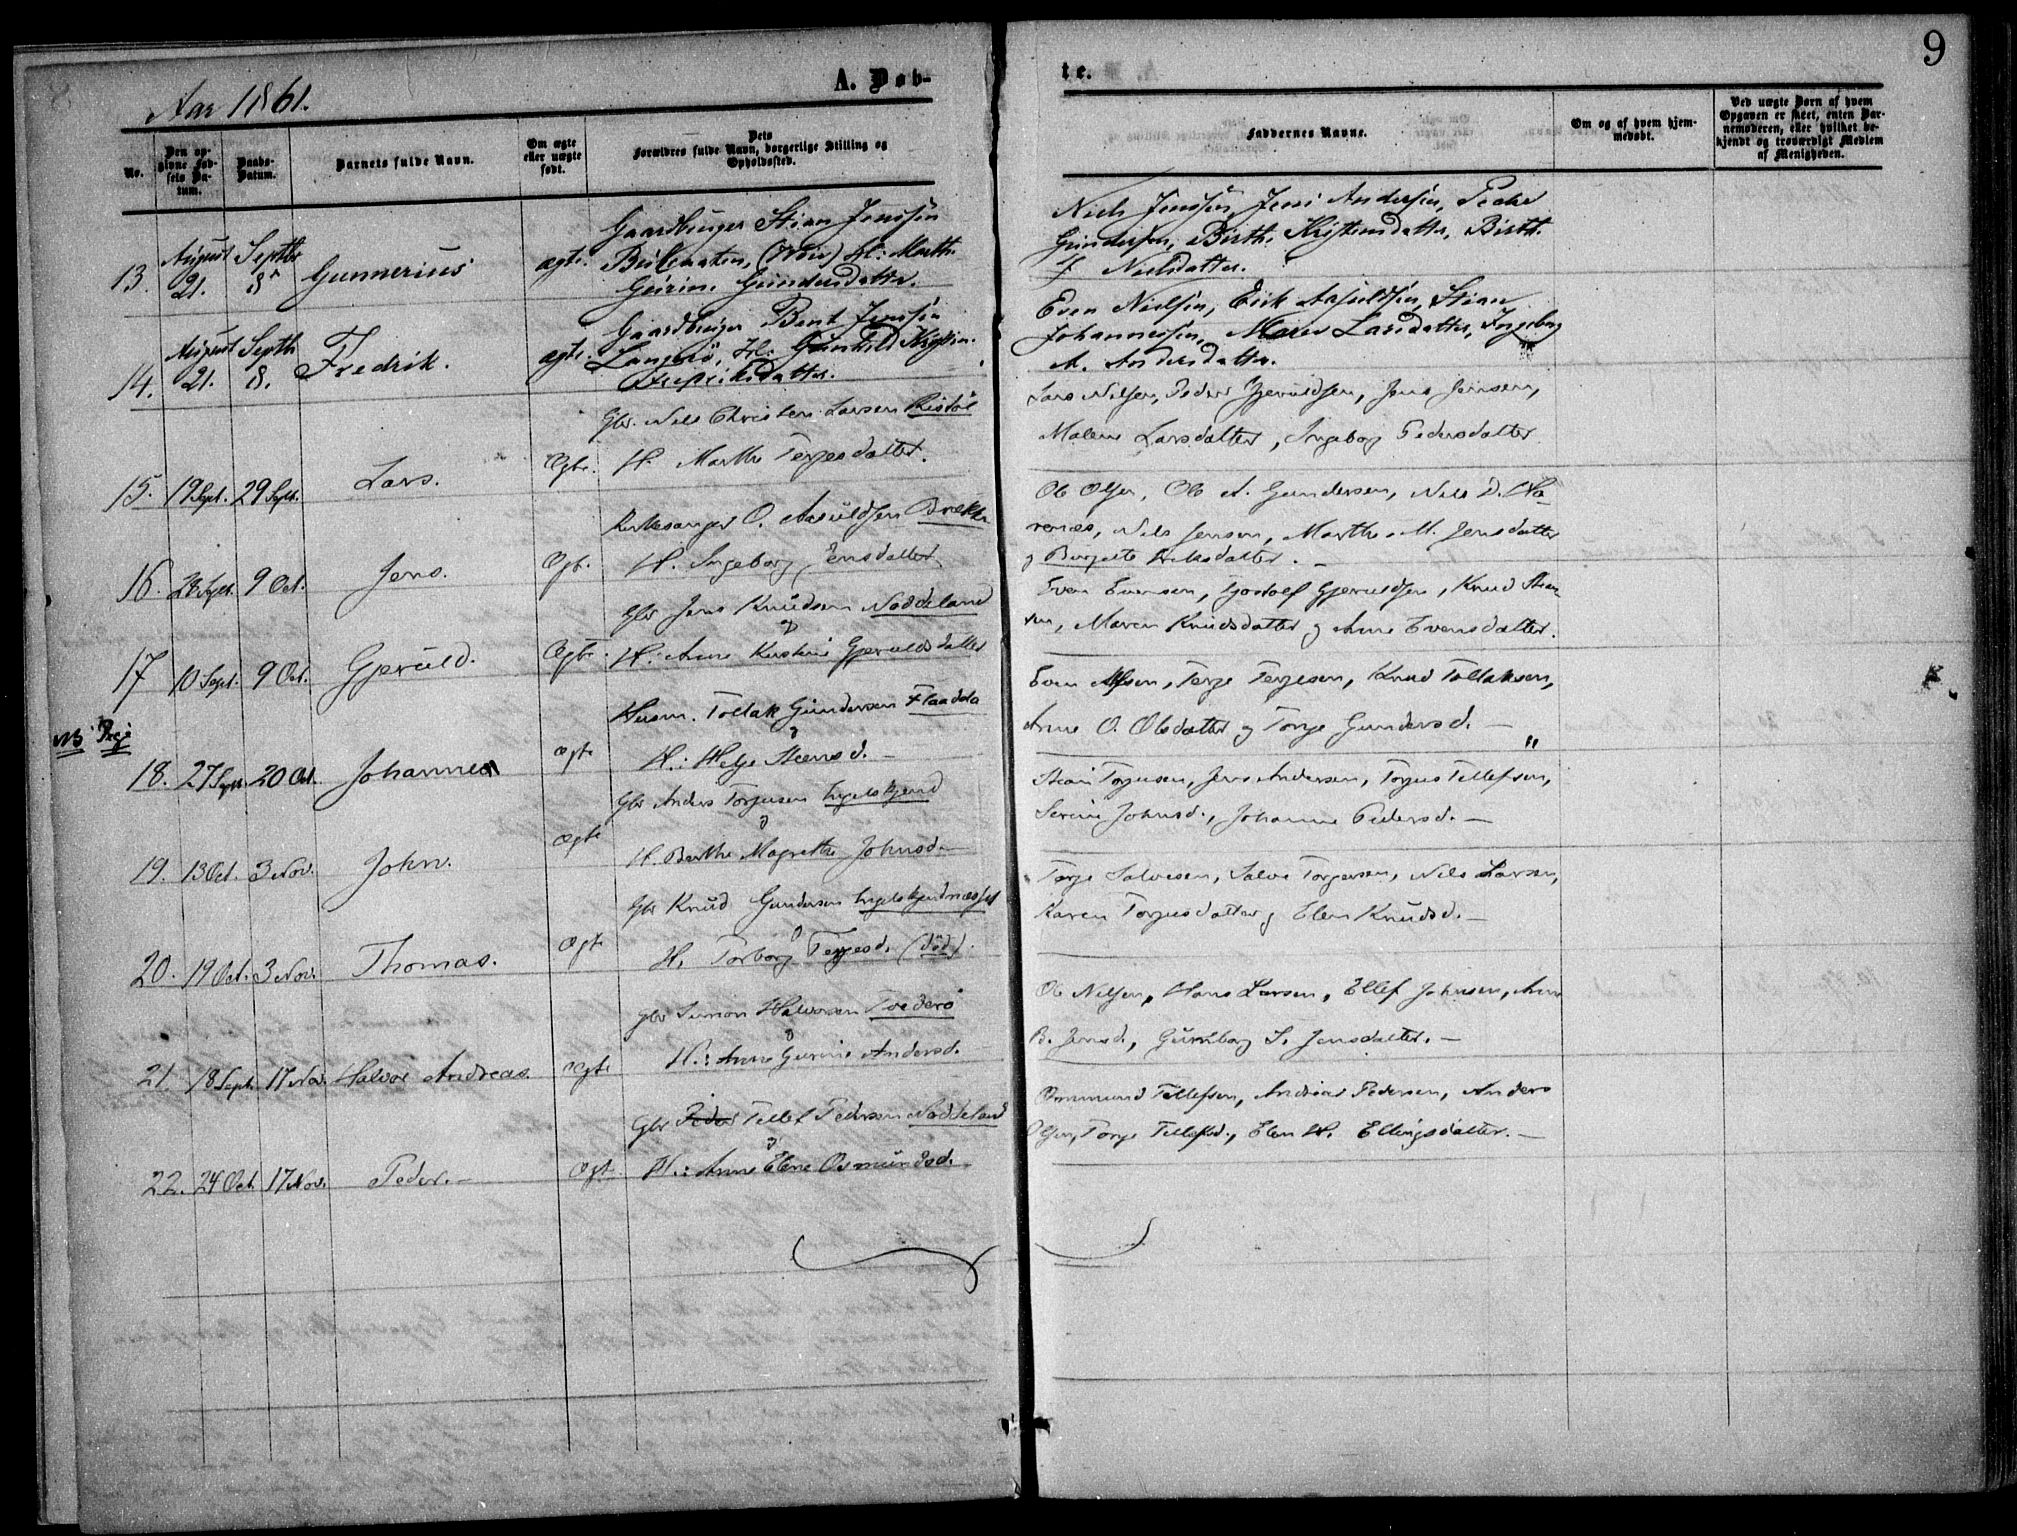 9
Aar 1861.
A. Døb-
te.
No.
Den op-
givne Fød-
sels Da-
tum.
Daabs-
Datum.
Barnets fulde Navn.
Om ægte
eller uægte
født.
Dets
Forældres fulde Navn, borgerlige Stilling og
Opholdssted.
Faddernes Navne.
Om og af hvem hjem-
medøbt.
Ved uægte Børn af hvem
Opgaven er skeet, enten Bar-
nemoderen, eller hvilket be-
kjendt og troværdigt Medlem
af Menigheden.
13.
August
21.
Septbr
8
Gunnerius
ægte.
Gaardbruger Stian Jenssen
H: Marth.
Gurine Gundersdatter.
Niels Jenssen, Jens Andersen, Peder
Gundersen, Birthe Kristensdatter, Birth.
Nielsdatter.
14.
August
21.
Septb
8.
Fredrik.
ægte.
Gaardbruger Bent Jenssen
H: Gunhild Kristin.
Fredriksdatter.
Even Nielsen, Erik Aasuldsen, Stian
Johannessen, Maren Larsdatter, Ingeborg
A. Andersdatter.
15.
19 Sept.
29 Sept.
Lars.
Ægte.
Gbr. Nils Christen Larsen Ristøl
H. Marthe Terjesdatter.
Lars Nilsen, Peder Gjeruldsen, Jens Jensen,
Malene Larsdatter, Ingeborg Pedersdatter
16.
28 Sept.
9 Oct.
Jens.
Ægt.
Kirkesanger O. Aasuldsen Brække
H. Ingeborg Jensdatter
Ole Olsen, Ole A. Gundersen, Nils D. Na-
renæs, Nils Jensen, Marthe M. Jensdatter
og Bergitte Eriksdatter. -
17
10 Sept.
9 Oct.
Gjeruld.
Ægte.
Gbr Jens Knudsen Naddeland
H. Anne Kirstine Gjeruldsdatter
Even Evensen, Gjostolf Gjeruldsen, Knud Stian-
sen, Maren Knudsdatter og Anne Evensdatter.
NB
18.
27 Sept.
20 Oct.
Johannes
Ægte
Husm. Tollak Gundersen Flaadda
H.: Helje Steensd. -
Even Alfsen, Terje Terjesen, Knud Tollaksen,
Anne O. Olsdatter og Torje Gundersd. -
19.
13 Oct.
3 Nov.
John.
Ægte
Gbr Anders Torjusen Engelskjønd
H. Berthe Magrethe Johnsd. -
Stian Torjusen, Jens Andersen, Torjus Tellefsen,
Serine Johnsd., Johanne Pedersd. -
20.
19 Oct.
3 Nov.
Thomas.
Ægte
Gbr Knud Gundersen Engelskjøndnæsset
H. Torborg Terjesd. (død).
Terje Salvesen, Salve Torgersen, Nils Larsen,
Karen Torjusdatter og Elen Knudsd. -
21.
18 Sept.
17 Nov.
Halvor Andreas.
Ægte
Gbr Simon Halvorsen Tvederø
H.: Anne Gurine Andersd.
Ole Nilsen, Hans Larsen, Ellef Johnsen, Anne
B. Jensd., Gunborg S. Jensdatter. -
22.
24 Oct.
17 Nov.
Peder. -
Ægte
Gbr Peder Tellef Pedersen Naddeland
H.: Anne Elene Osmundsd.
Ommund Tellefsen, Andreas Pedersen, Anders
Olsen, Torje Tellefsd., Elen H. Ellingsdatter. -